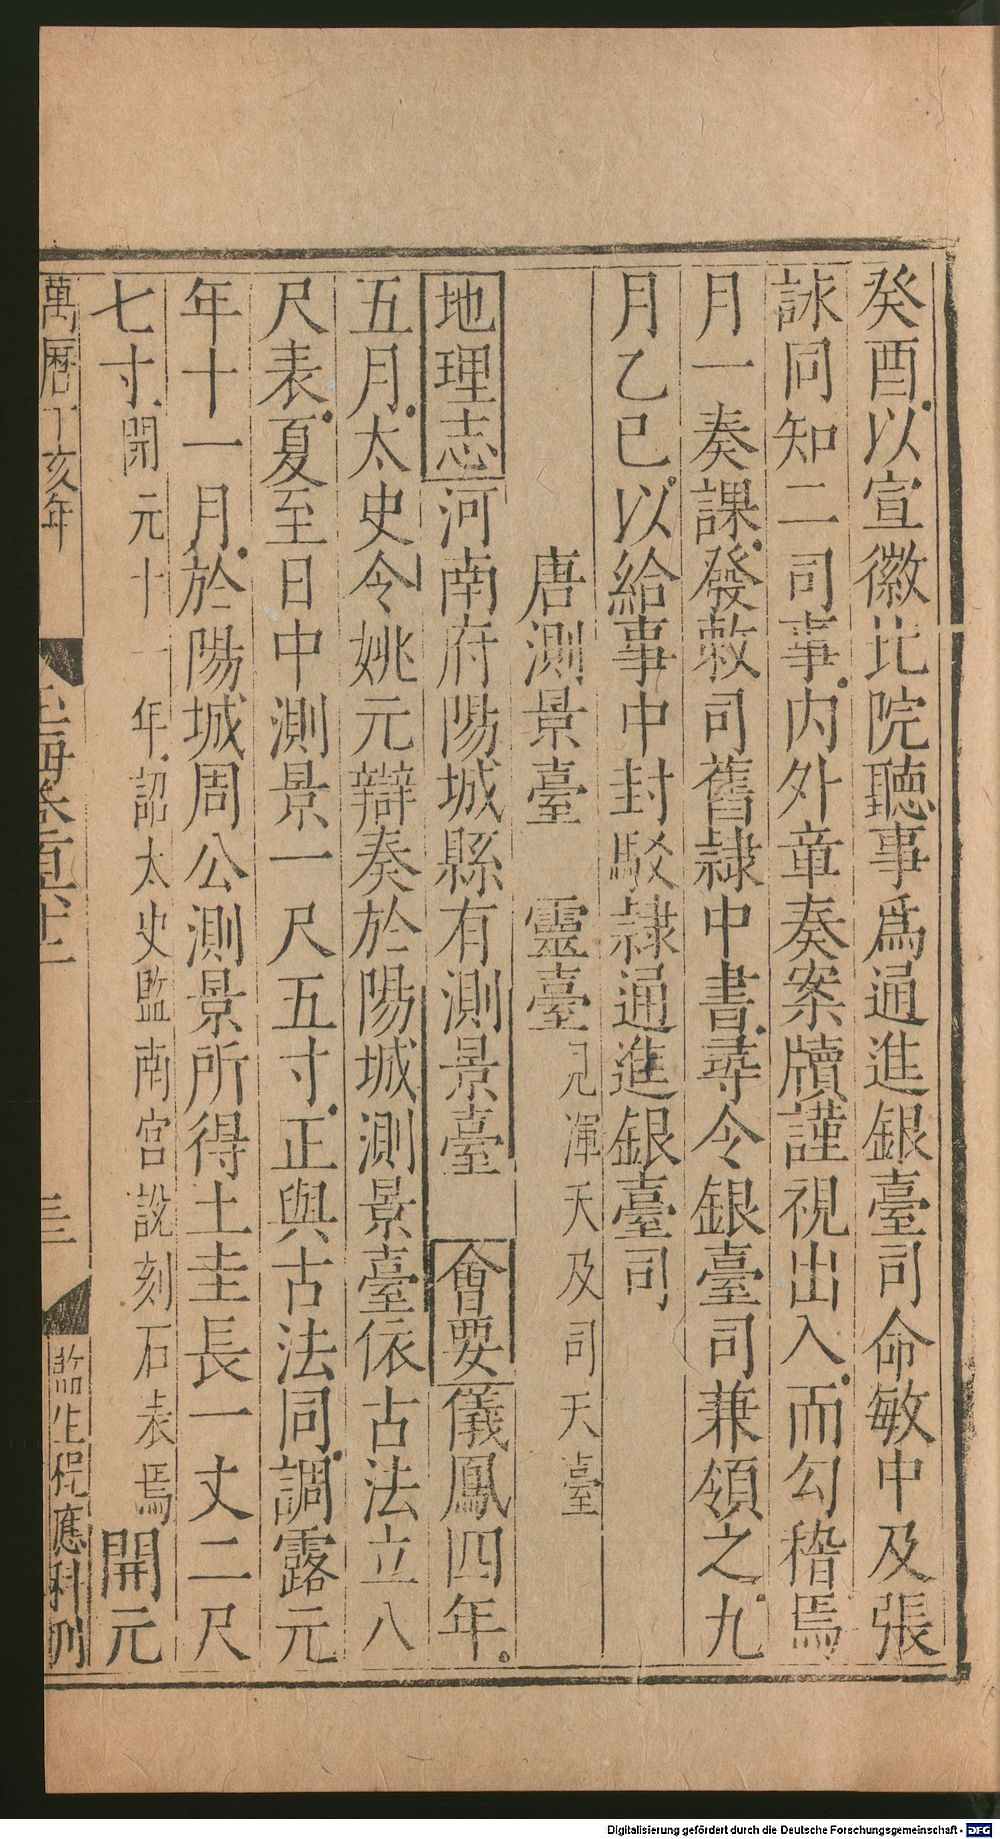 癸酉以宣徽北院聽事爲通進銀臺司命敏中及張
詠同知二司事内外章奏案牘謹視出入而勾稽焉
月一奏課發敕司舊隷中書尋令銀臺司兼領之九
月乙巳以給事中封駁隷通進銀臺司
唐測景臺 靈臺見渾天及司天臺
地理志河南府陽城縣有測景臺 會要儀鳳四年
五月太史令姚元辯奏於陽城測景臺依古法立八
尺表夏至日中測景一尺五寸正與古法同調露元
年十一月於陽城周公測景所得土圭長一丈二尺
七寸開元十一年詔太史監南宮說刻石表焉開元
萬曆丁亥年
玉海卷百六十二
圭
監生程應科刊
Digitalisierung gefördert durch die Deutsche Forschungsgemeinschaft - DFG